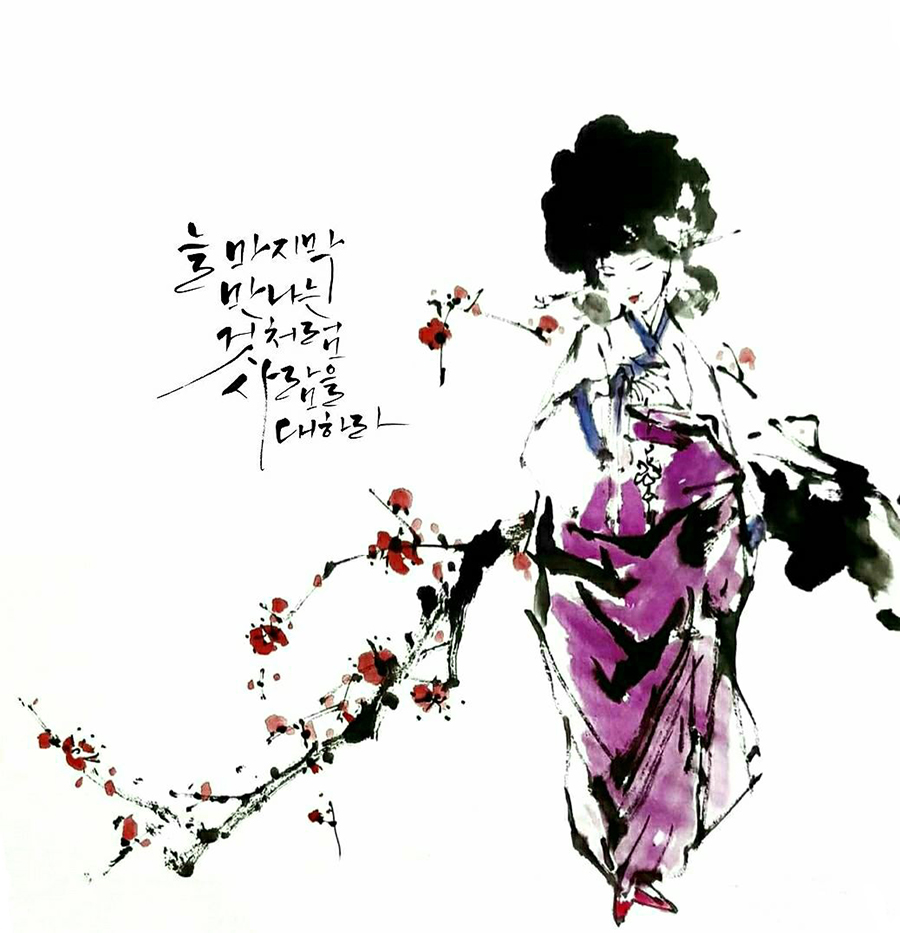 늘 마지막
만나는
것처럼
사람을
대하라